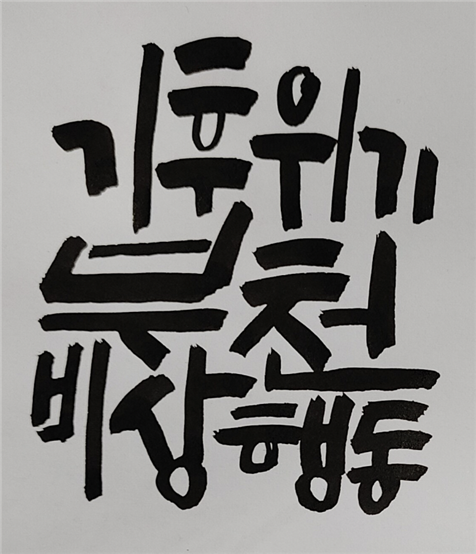 기후위기
부천
비상행동